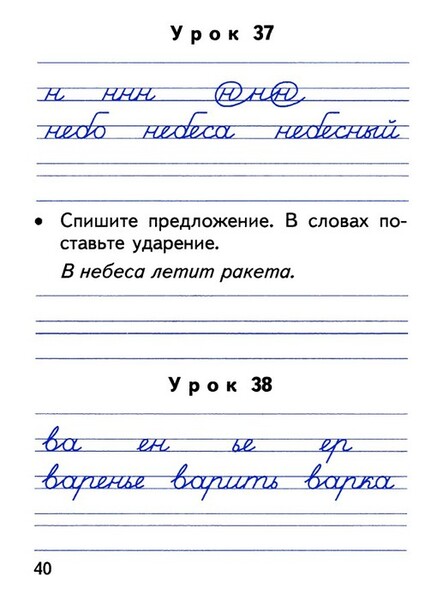 Урок 37
н ннн ннн
небо небеса небесный
• Спишите предложение. В словах по-
ставьте ударение.
В небеса летит ракета.
Урок 38
ва ен ье ер
варенье варить варка
40